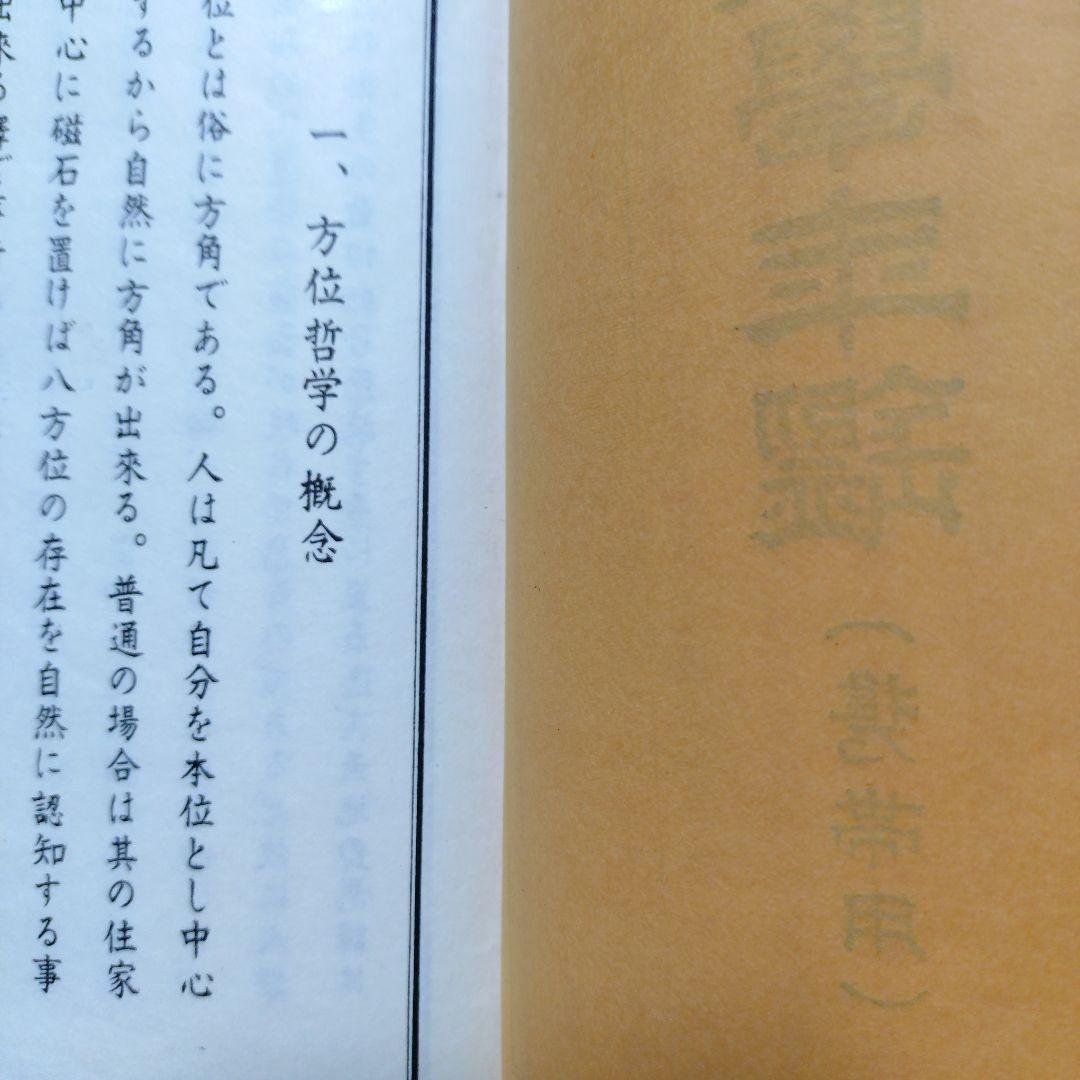 一、方位哲学の概念
位とは俗に方角である。人は凡て自分を本位とし中心
するから自然に方角が出來る。普通の場合は其の住家
中心に磁石を置けば八方位の存在を自然に認知する事
出来る
（携帯用）